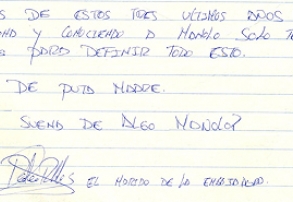 S DE ESTOS TRES ULTIMOS AÑOS
DAD Y CONOCIENDO A MANOLO SOLO TE
S PARA DEFINIR TODO ESTO.
DE PUTA MADRE.
SUENA DE ALGO MANOLO?
EL MARIDO DE LA EMBAJADORA.